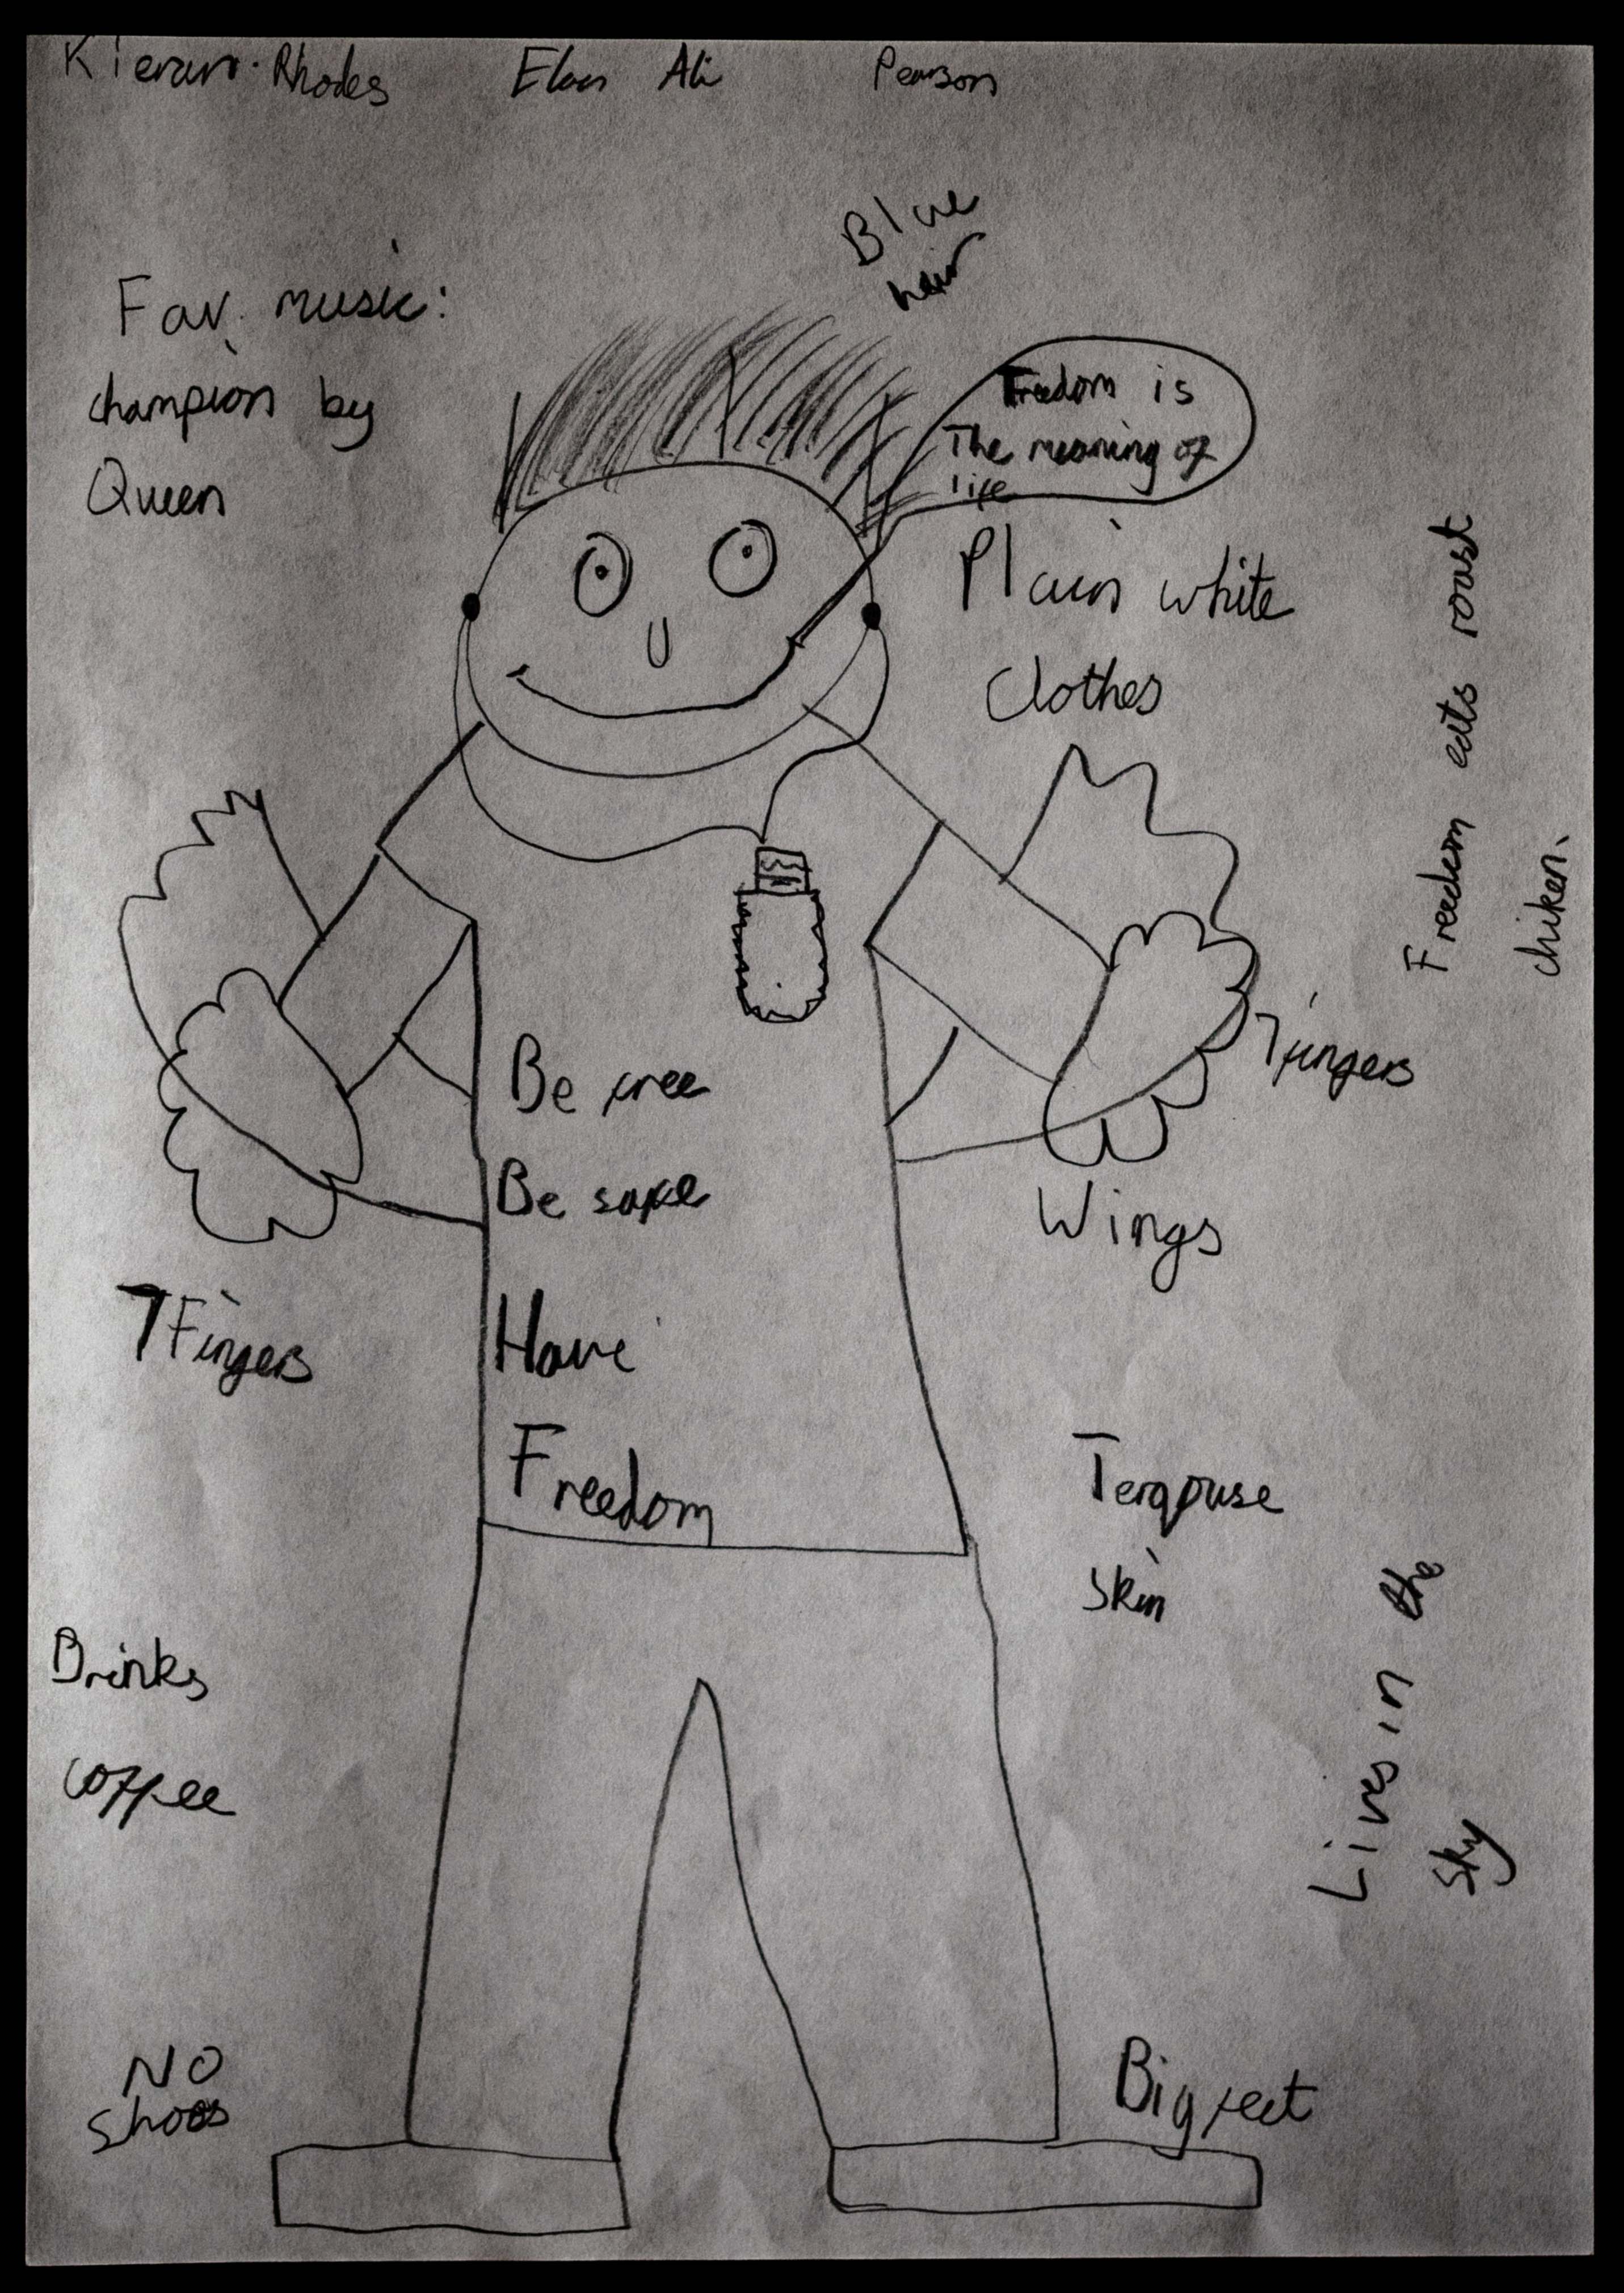 Kieran Rhodes Elan Ali Pearson
Blue
hair
Fav. music:
champion by
Queen
Freedom is
The meaning of
life
Plain white
Clothes
Freedom eats roast
chiken.
7 fingers
Wings
Be free
Be safe
Have
Freedom
7 Fingers
Terqouse
Skin
Lives in the
Sky
Drinks
coffee
NO
shoes
Big feet